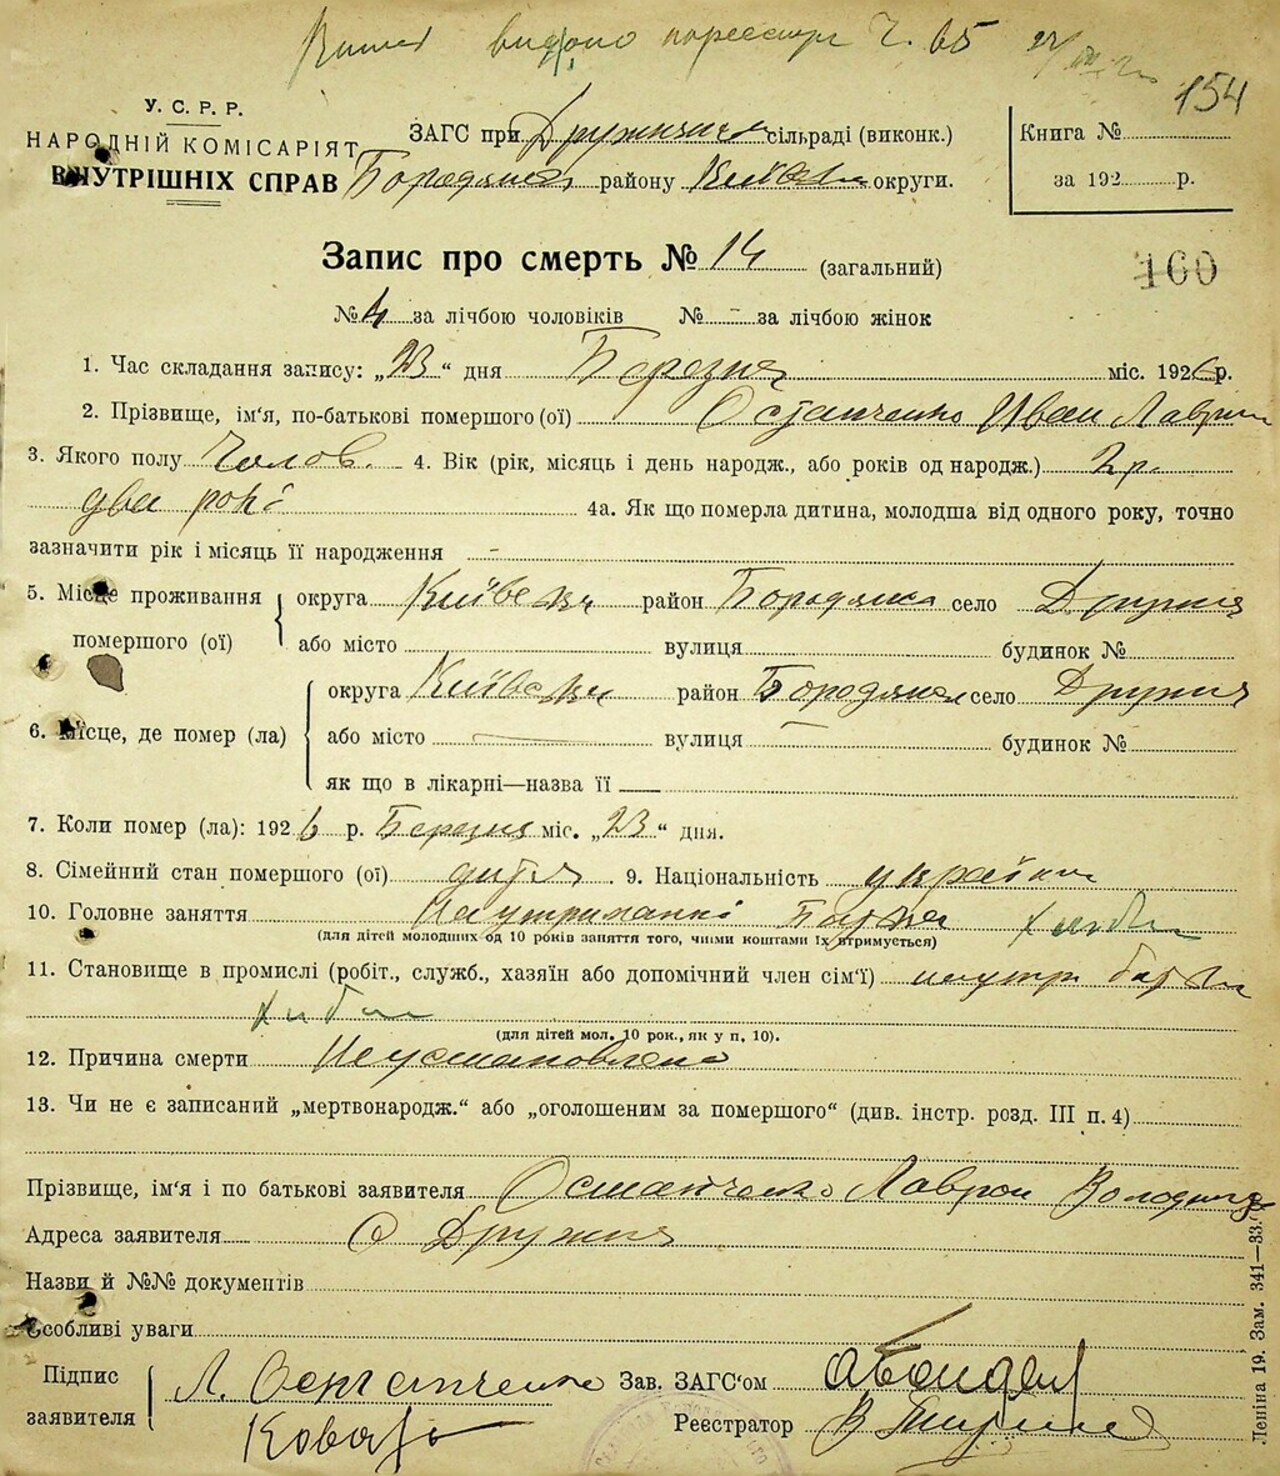 видано Ч. 65
154
У. С. Р. Р.
НАРОДНІЙ КОМІСАРІЯТ
ВНУТРІШНІХ СПРАВ
ЗАГС при сільраді (виконк.)
району округи.
Книга №
за 192 р.
Запис про смерть № 14 (загальний)
160
№ 4 за лічбою чоловіків № - за лічбою жінок
1. Час складання запису: „23“ дня Березня міс. 1926 р.
2. Прізвище, ім‘я, по-батькові помершого (ої) Остапченко Иван
3. Якого полу Чолов. 4. Вік (рік, місяць і день народж., або років од народж.) 2 р.
два рокі 4а. Як що померла дитина, молодша від одного року, точно
зазначити рік і місяць її народження -
5. Місце проживання округа район село Дружня
помершого (ої) або місто вулиця будинок №
округа район село Дружня
6. Місце, де помер (ла) або місто вулиця будинок №
як що в лікарні—назва її
7. Коли помер (ла): 1926 р. Березня міс. „23“ дня.
8. Сімейний стан помершого (ої) дитя 9. Національність
10. Головне заняття На утриманні батька
(для дітей молодших од 10 років заняття того, чиїми коштами їх втримується)
11. Становище в промислі (робіт., служб., хазяїн або допомічний член сім‘ї)
(для дітей мол. 10 рок., як у п. 10).
12. Причина смерти Неустановлена
13. Чи не є записаний „мертвонародж.“ або „оголошеним за помершого“ (див. інстр. розд. III п. 4)
Прізвище, ім‘я і по батькові заявителя Остапченко
Адреса заявителя С Дружня
Назви й №№ документів
Особливі уваги
Підпис Л. Зав. ЗАГС‘ом
заявителя Реєстратор
Леніна 19. Зам. 341—33.